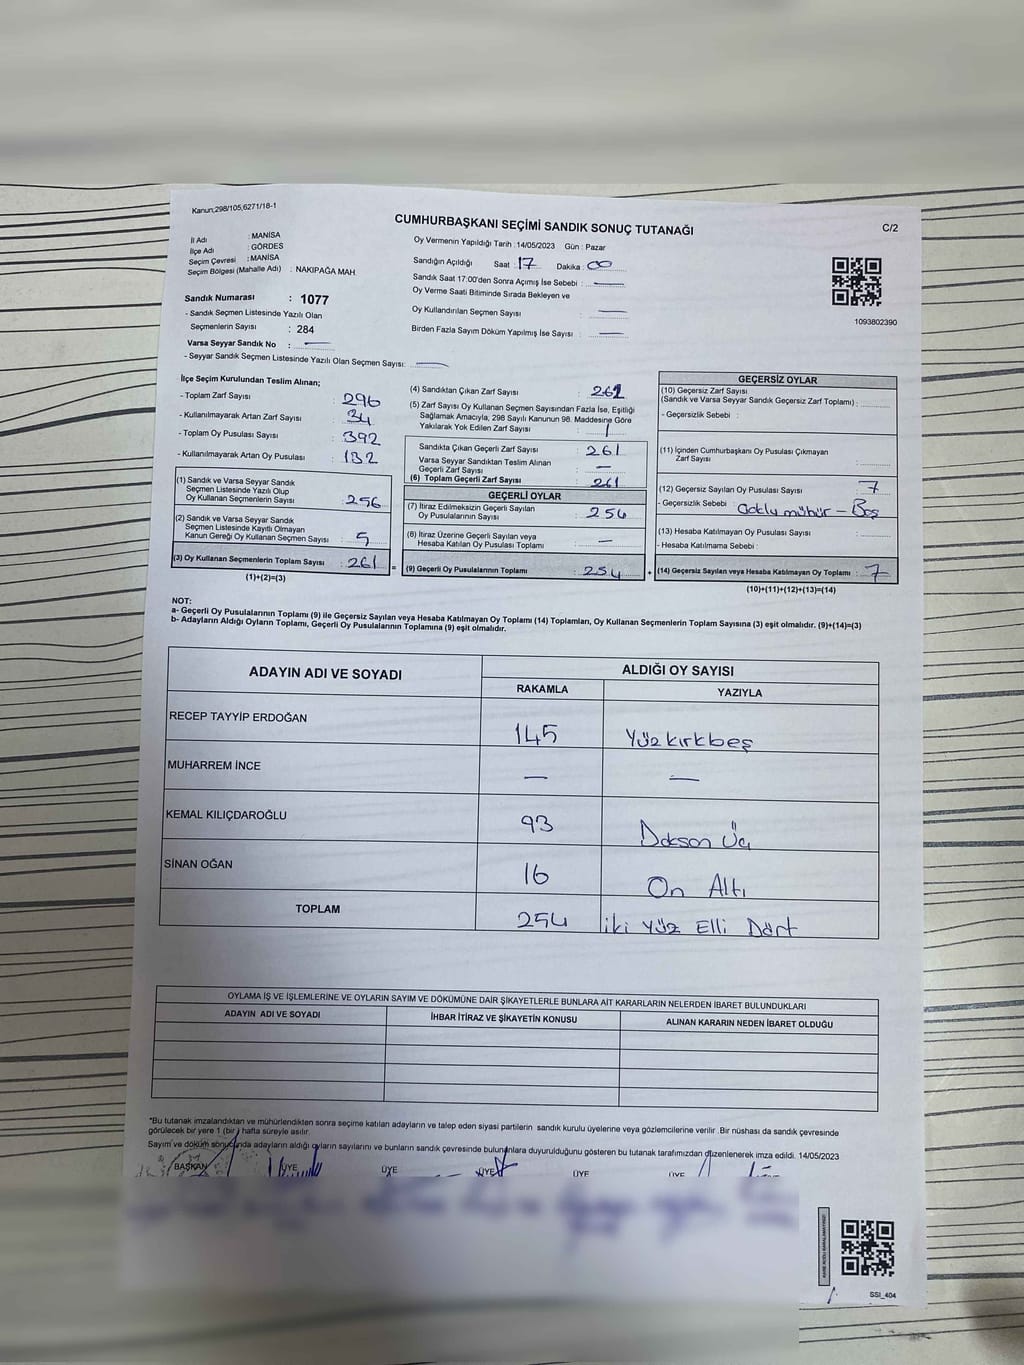 Kanun;298/105,6271/18-1
CUMHURBAŞKANI SEÇİMİ SANDIK SONUÇ TUTANAĞI
C/2
İl Adı : MANİSA
İlçe Adı : GÖRDES
Seçim Çevresi : MANİSA
Seçim Bölgesi (Mahalle Adı) : NAKIPAĞA MAH
Sandık Numarası : 1077
- Sandık Seçmen Listesinde Yazılı Olan
Seçmenlerin Sayısı : 284
Varsa Seyyar Sandık No : —
- Seyyar Sandık Seçmen Listesinde Yazılı Olan Seçmen Sayısı: —
Oy Vermenin Yapıldığı Tarih :14/05/2023 Gün : Pazar
Sandığın Açıldığı Saat : 17 Dakika : 00
Sandık Saat 17:00'den Sonra Açımış İse Sebebi : —
Oy Verme Saati Bitiminde Sırada Bekleyen ve
Oy Kullandırılan Seçmen Sayısı : —
Birden Fazla Sayım Döküm Yapılmış İse Sayısı : —
1093802390
İlçe Seçim Kurulundan Teslim Alınan;
- Toplam Zarf Sayısı : 296
- Kullanılmayarak Artan Zarf Sayısı : 34
- Toplam Oy Pusulası Sayısı : 392
- Kullanılmayarak Artan Oy Pusulası : 132
(1) Sandık ve Varsa Seyyar Sandık
Seçmen Listesinde Yazılı Olup
Oy Kullanan Seçmenlerin Sayısı : 256
(2) Sandık ve Varsa Seyyar Sandık
Seçmen Listesinde Kayıtlı Olmayan
Kanun Gereği Oy Kullanan Seçmen Sayısı : 5
(3) Oy Kullanan Seçmenlerin Toplam Sayısı : 261
(1)+(2)=(3)
=
(4) Sandıktan Çıkan Zarf Sayısı : 262
(5) Zarf Sayısı Oy Kullanan Seçmen Sayısından Fazla İse, Eşitliği
Sağlamak Amacıyla, 298 Sayılı Kanunun 98. Maddesine Göre
Yakılarak Yok Edilen Zarf Sayısı : 1
Sandıkta Çıkan Geçerli Zarf Sayısı : 261
Varsa Seyyar Sandıktan Teslim Alınan
Geçerli Zarf Sayısı : —
(6) Toplam Geçerli Zarf Sayısı : 261
GEÇERLİ OYLAR
(7) İtiraz Edilmeksizin Geçerli Sayılan
Oy Pusulalarının Sayısı : 254
(8) İtiraz Üzerine Geçerli Sayılan veya
Hesaba Katılan Oy Pusulası Toplamı : —
(9) Geçerli Oy Pusulalarının Toplamı : 254
+
GEÇERSİZ OYLAR
(10) Geçersiz Zarf Sayısı
(Sandık ve Varsa Seyyar Sandık Geçersiz Zarf Toplamı) :
- Geçersizlik Sebebi :
(11) İçinden Cumhurbaşkanı Oy Pusulası Çıkmayan
Zarf Sayısı :
(12) Geçersiz Sayılan Oy Pusulası Sayısı : 7
- Geçersizlik Sebebi : mühür - Boş
(13) Hesaba Katılmayan Oy Pusulası Sayısı :
- Hesaba Katılmama Sebebi :
(14) Geçersiz Sayılan veya Hesaba Katılmayan Oy Toplamı : 7
(10)+(11)+(12)+(13)=(14)
NOT:
a- Geçerli Oy Pusulalarının Toplamı (9) ile Geçersiz Sayılan veya Hesaba Katılmayan Oy Toplamı (14) Toplamları, Oy Kullanan Seçmenlerin Toplam Sayısına (3) eşit olmalıdır. (9)+(14)=(3)
b- Adayların Aldığı Oyların Toplamı, Geçerli Oy Pusulalarının Toplamına (9) eşit olmalıdır.
ADAYIN ADI VE SOYADI ALDIĞI OY SAYISI
RAKAMLA YAZIYLA
RECEP TAYYİP ERDOĞAN 145 Yüzkırkbeş
MUHARREM İNCE — —
KEMAL KILIÇDAROĞLU 93 Doksan Üç
SİNAN OĞAN 16 On Altı
TOPLAM 254 iki Yüz Elli Dört
OYLAMA İŞ VE İŞLEMLERİNE VE OYLARIN SAYIM VE DÖKÜMÜNE DAİR ŞİKAYETLERLE BUNLARA AİT KARARLARIN NELERDEN İBARET BULUNDUKLARI
ADAYIN ADI VE SOYADI İHBAR İTİRAZ VE ŞİKAYETİN KONUSU ALINAN KARARIN NEDEN İBARET OLDUĞU
*Bu tutanak imzalandıktan ve mühürlendikten sonra seçime katılan adayların ve talep eden siyasi partilerin sandık kurulu üyelerine veya gözlemcilerine verilir .Bir nüshası da sandık çevresinde
görülecek bir yere 1 (bir ) hafta süreyle asılır.
Sayım ve döküm sonucunda adayların aldığı oyların sayılarını ve bunların sandık çevresinde bulunanlara duyurulduğunu gösteren bu tutanak tarafımızdan düzenlenerek imza edildi. 14/05/2023
BAŞKAN ÜYE ÜYE ÜYE ÜYE ÜYE
SSI_404